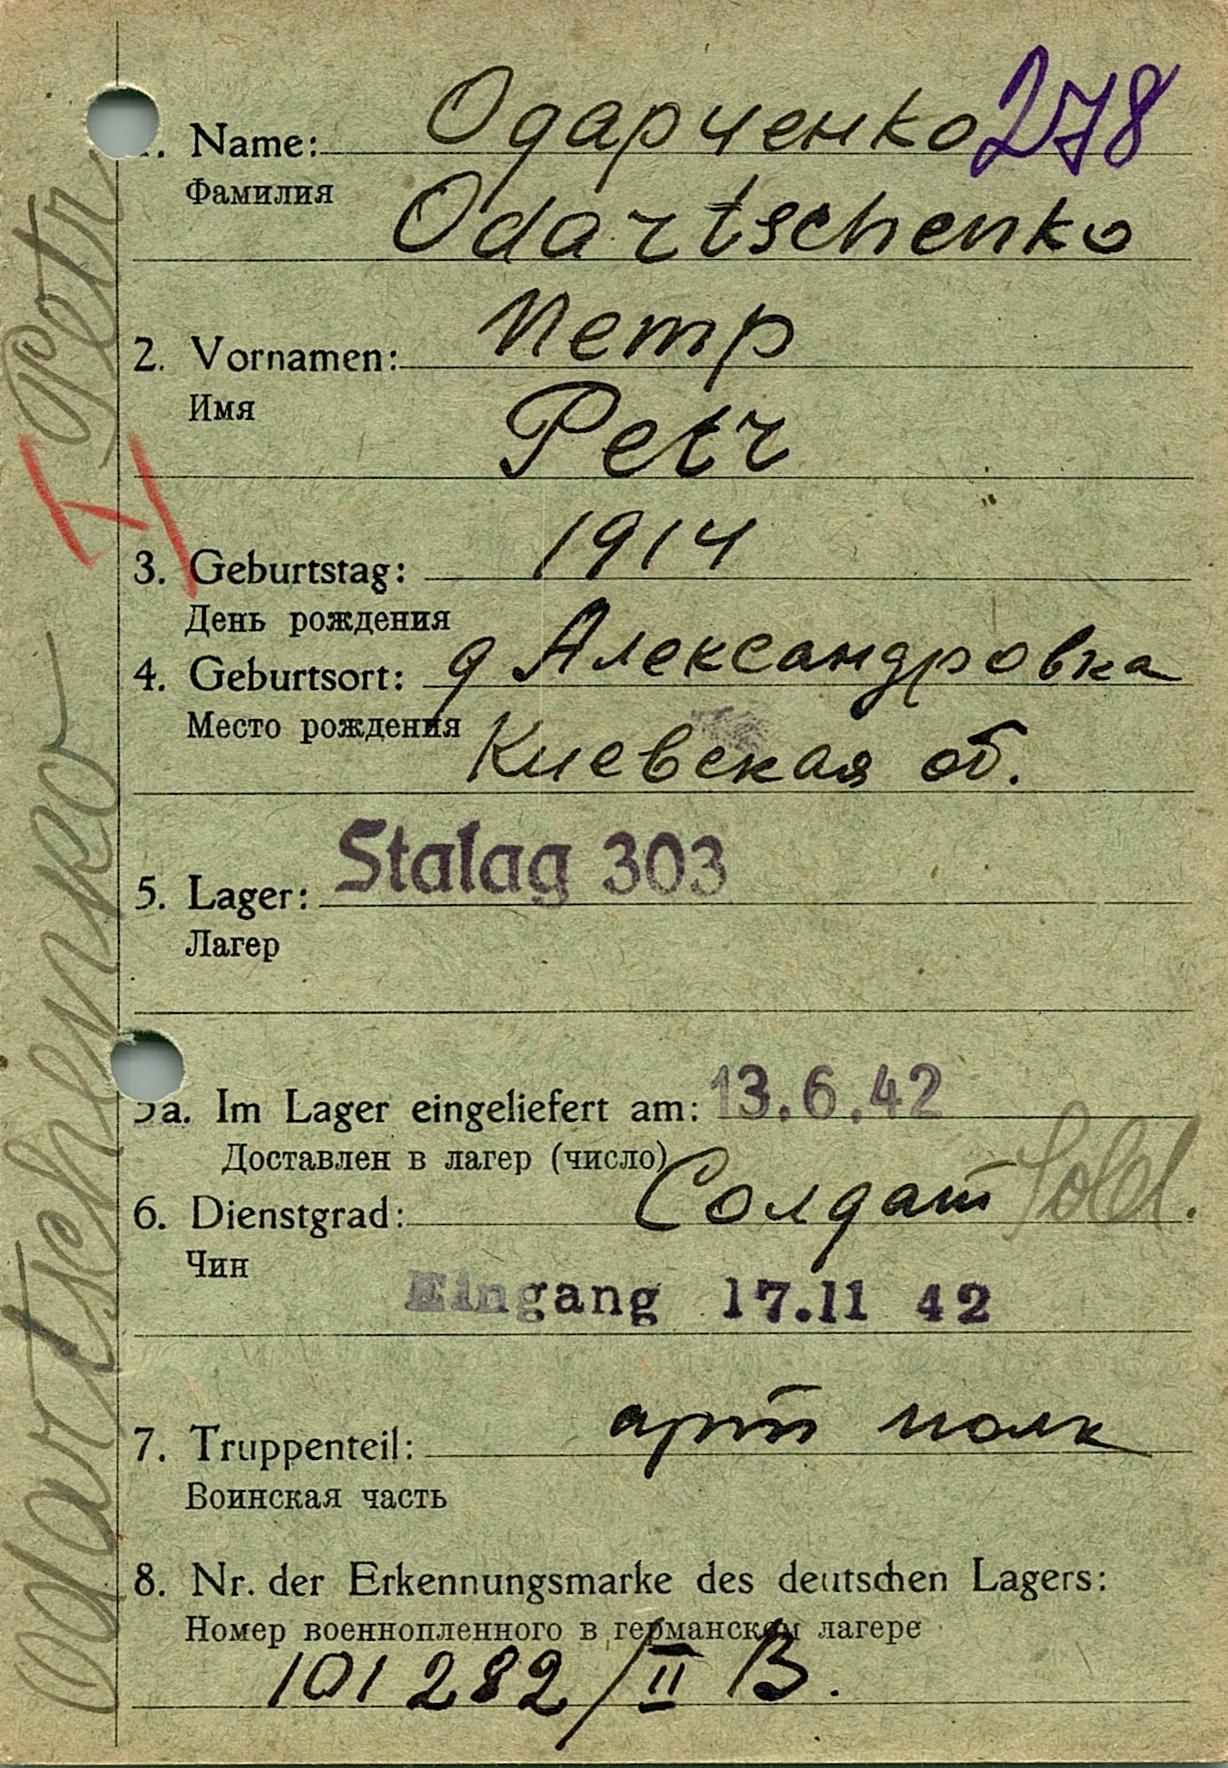 1. Name: Одарченко 278
Фамилия
Odartschenko
2. Vornamen: Петр
Имя
Petr
3. Geburtstag: 1914
День рождения
4. Geburtsort: д Александровка
Место рождения
Киевская об.
5. Lager: Stalag 303
Лагер
5a. Im Lager eingeliefert am: 13.6.42
Доставлен в лагер (число)
6. Dienstgrad: Солдат Sold.
Чин
Eingang 17.11 42
7. Truppenteil: арт полк
Воинская часть
8. Nr. der Erkennungsmarke des deutschen Lagers:
Номер военнопленного в германском лагере
101282/II B.
Odartschenko Petr